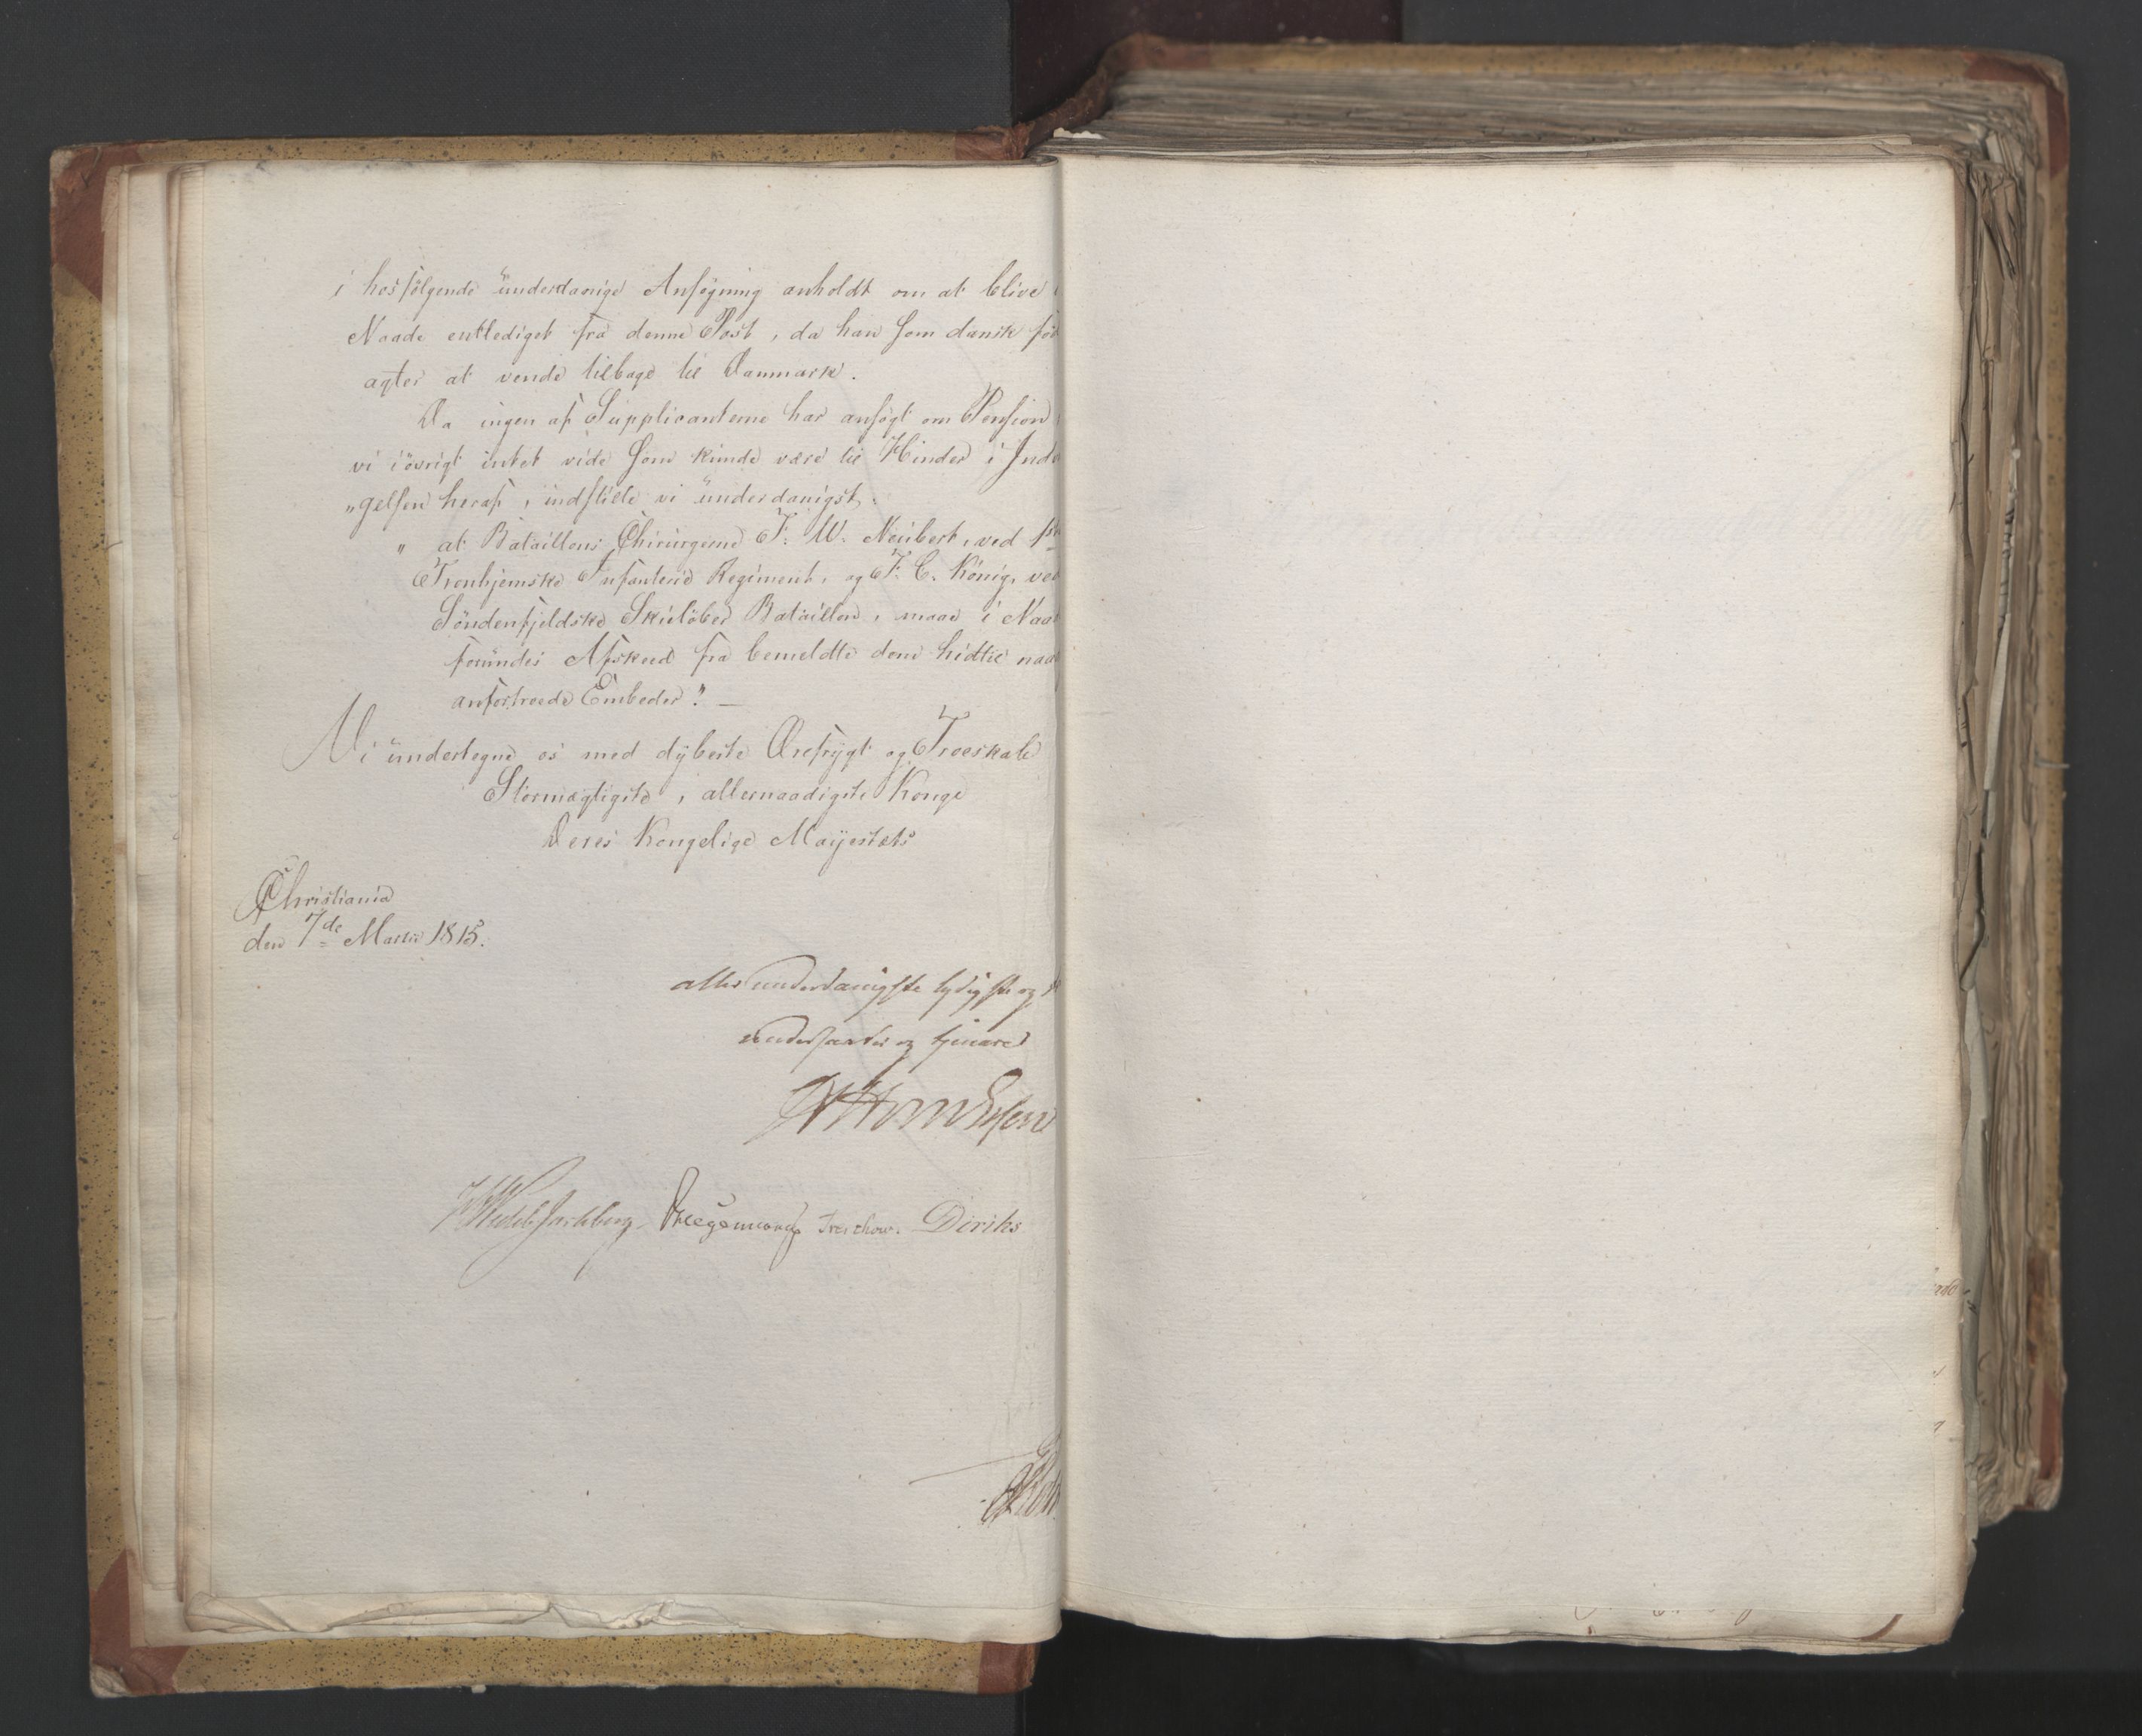 i hosfølgende underdanige Ansøgning anholdt om at blive
Naade entlediget fra denne Post, da han som dansk fød
agter at vende tilbage til Danmark.
Da ingen af Supplicanterne har ansøgt om Pension
vi i øvrigt intet vide som kunde være til Hinder i Ind
„gelsen heraf, indstille vi underdanigst:
„ at Bataillons Chirurgerne F. W. Neübert, ved 1ste
Tronhjemske Infanterie Regiment, og F. C. König, ved
Söndenfjeldske Skielöber Bataillon, maae i Naa
forundes Afskeed fra bemeldte dem hidtil naad
anfortroede Embeder." —
Vi undertegne os med dybeste Ærefrygt og Troeskab
Stormægtigste, allernaadigste Konge
Deres Kongelige Mayestæts
Christiania
den 7de Martii 1815.
allerunderdanigste lydigste og
undersaatter og tjenere
Wedel Jarlsberg Treschow. Diriks